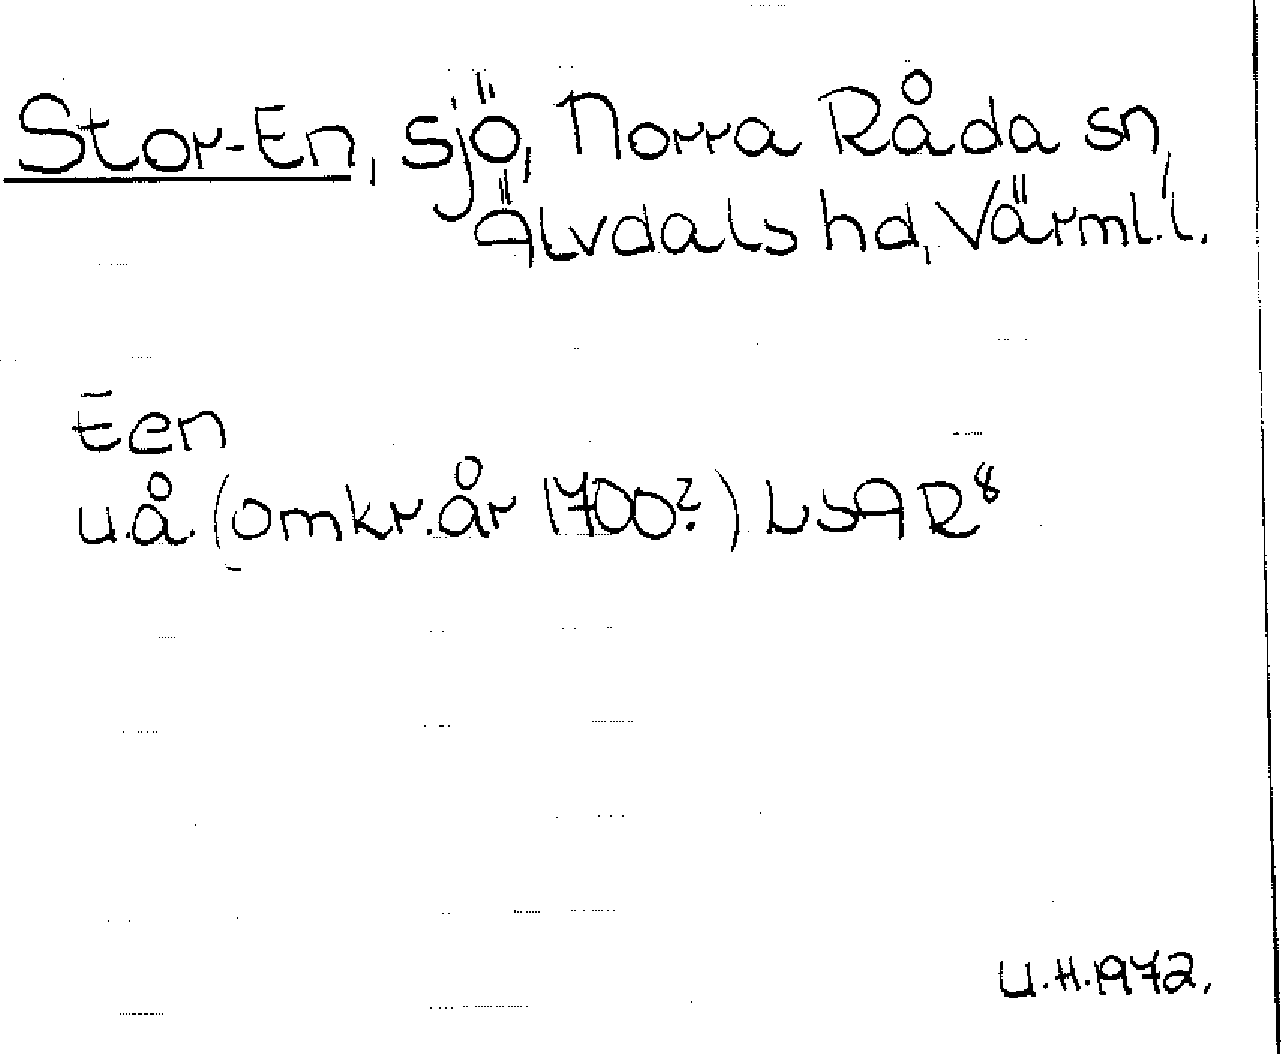 Stor-En, sjö, Norra Råda sn,
Älvdals hd, Värml. l.
Een
u.å. (omkr. år 1700?) LSA R⁸
U.H. 1972.